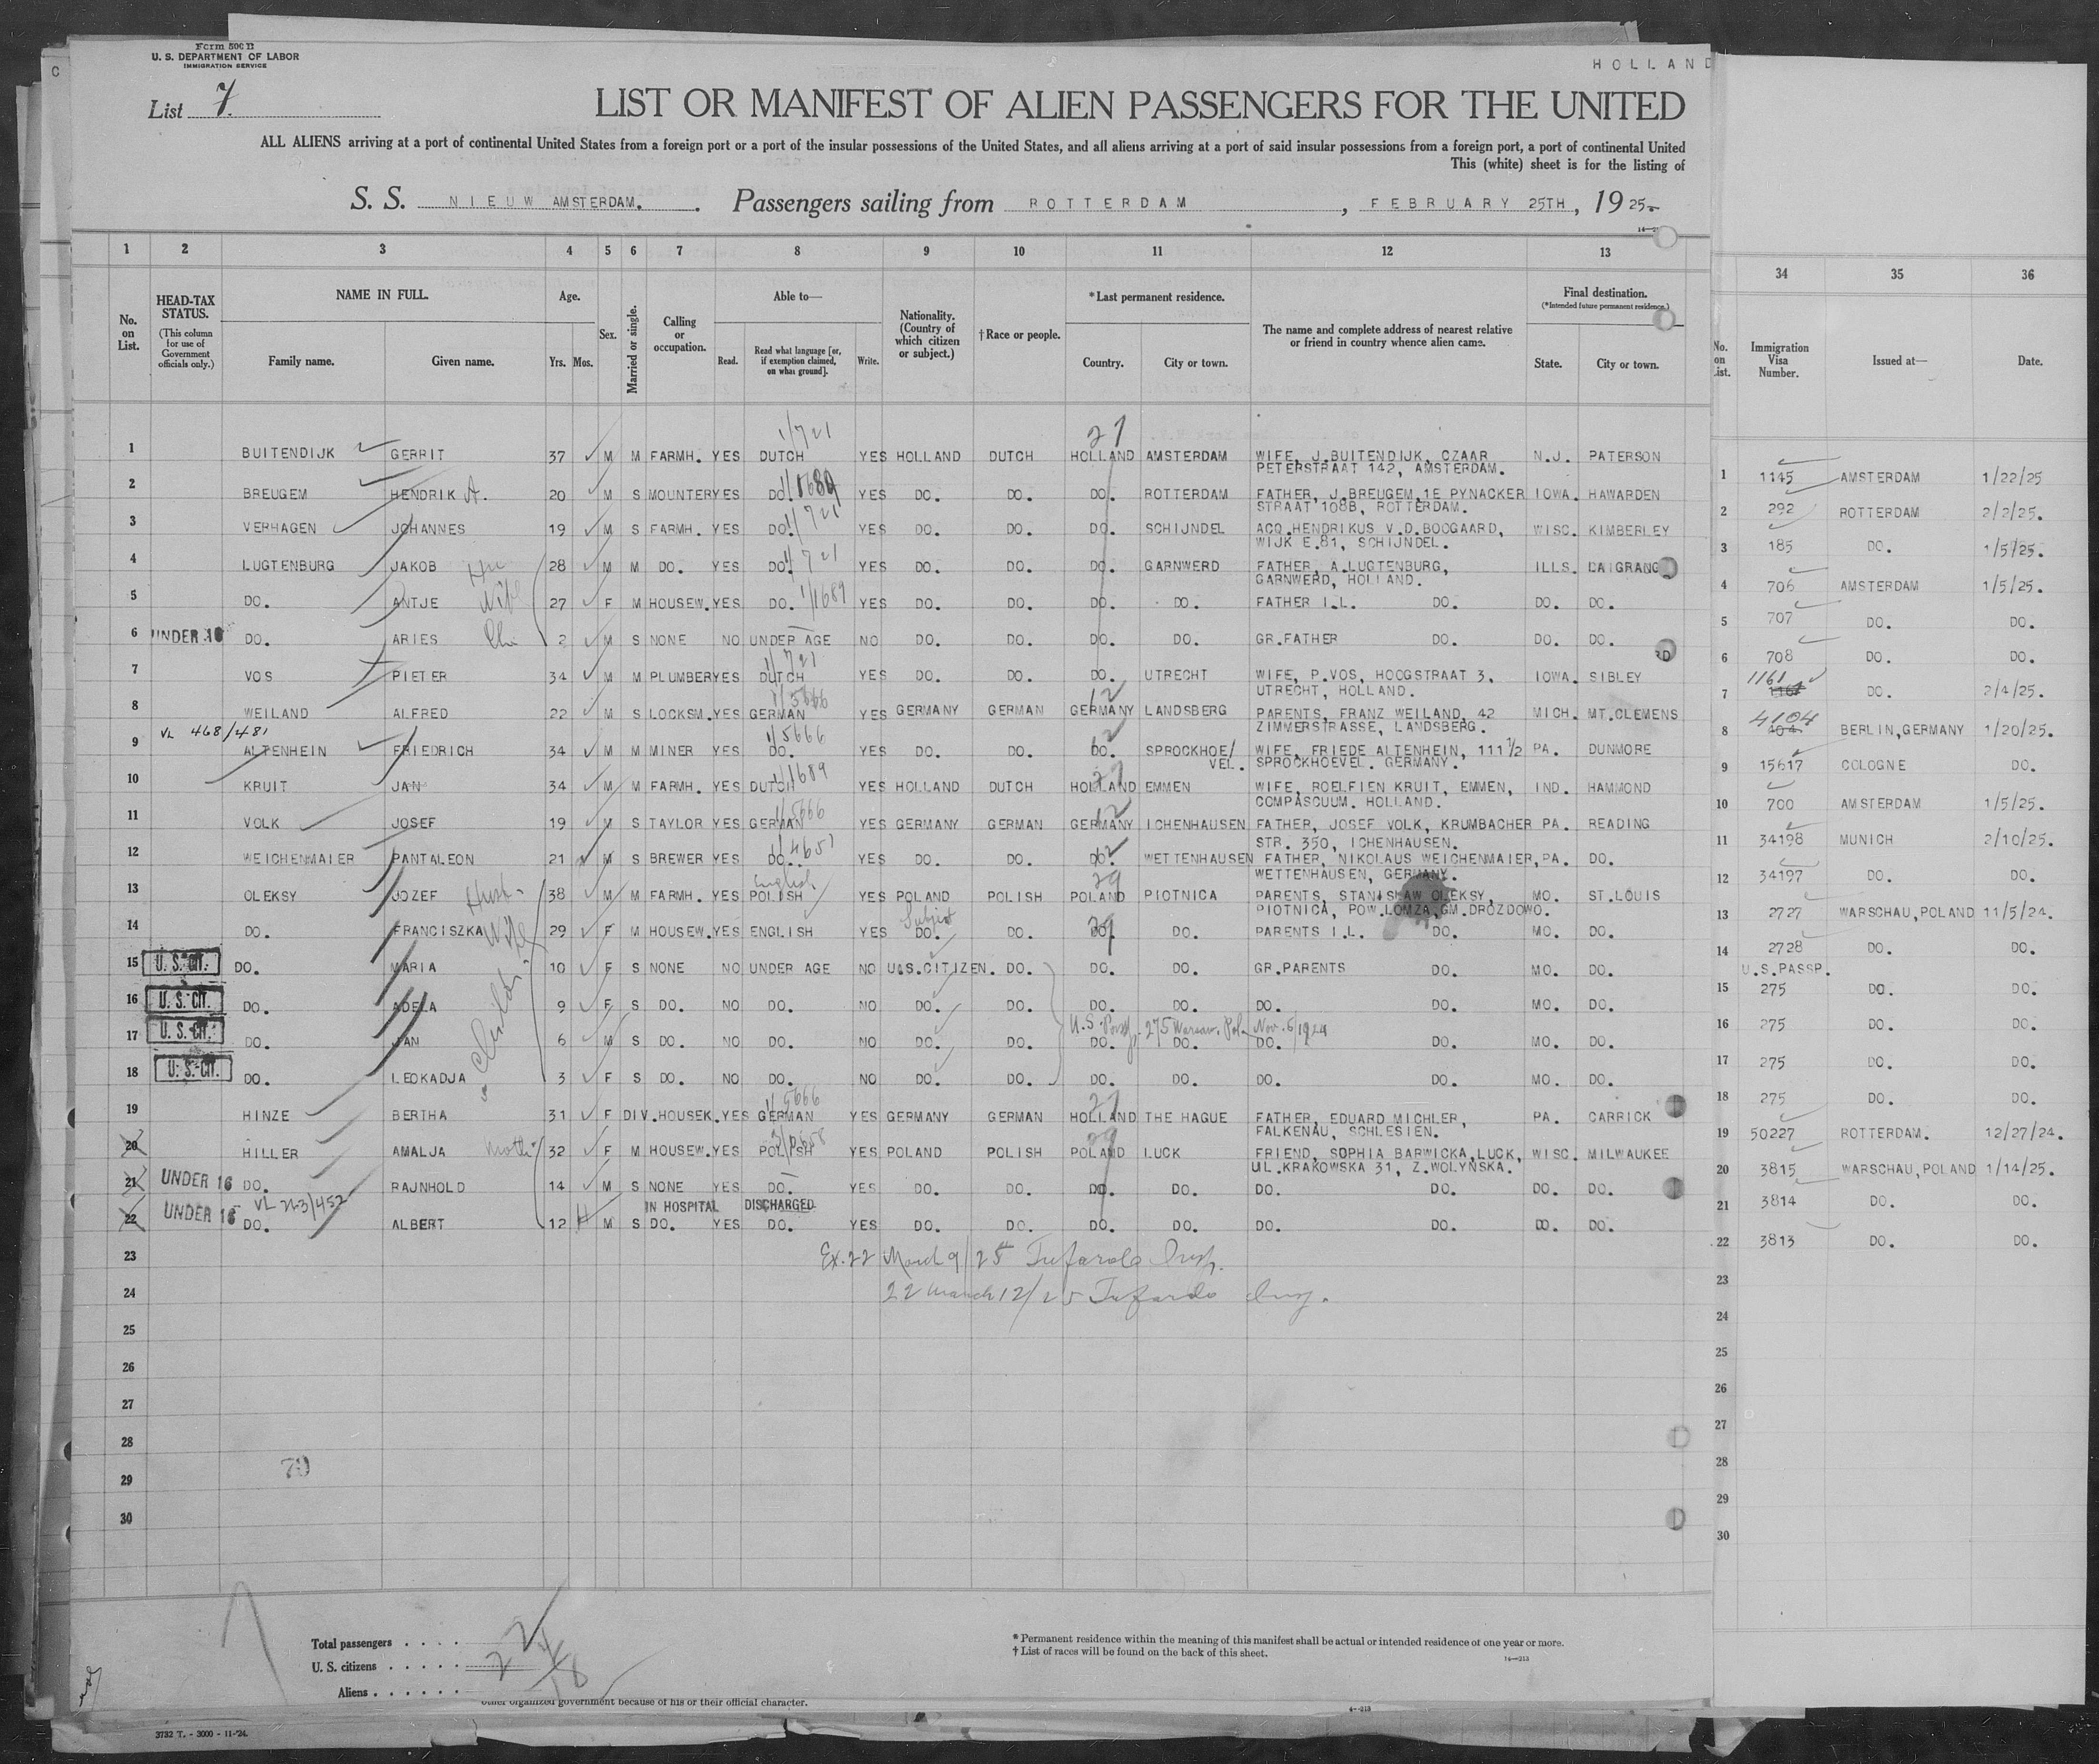 Form 500 B
U. S. DEPARTMENT OF LABOR
IMMIGRATION SERVICE
HOLLAND
List 7.
LIST OR MANIFEST OF ALIEN PASSENGERS FOR THE UNITED
ALL ALIENS arriving at a port of continental United States from a foreign port or a port of the insular possessions of the United States, and all aliens arriving at a port of said insular possessions from a foreign port, a port of continental United
This (white) sheet is for the listing of
S. S. NIEUW AMSTERDAM. Passengers sailing from ROTTERDAM, FEBRUARY 25TH, 1925.
1 2 3 4 5 6 7 8 9 10 11 12 13 34 35 36
No. on List.
HEAD-TAX STATUS.
(This column for use of Government officials only.)
NAME IN FULL.
Family name. Given name.
Age.
Yrs. Mos.
Sex.
Married or single.
Calling or occupation.
Able to—
Read. Read what language [or, if exemption claimed, on what ground]. Write.
Nationality. (Country of which citizen or subject.)
† Race or people.
*Last permanent residence.
Country. City or town.
The name and complete address of nearest relative or friend in country whence alien came.
Final destination.
(*Intended future permanent residence.)
State. City or town.
No. on List. Immigration Visa Number. Issued at— Date.
1/721 27
1 BUITENDIJK GERRIT 37 M M FARMH. YES DUTCH YES HOLLAND DUTCH HOLLAND AMSTERDAM WIFE, J.BUITENDIJK, CZAAR N.J. PATERSON
PETERSTRAAT 142, AMSTERDAM.
1 1145 AMSTERDAM 1/22/25
2 BREUGEM HENDRIK A. 20 M S MOUNTER YES DO. 1/1689 YES DO. DO. DO. ROTTERDAM FATHER, J.BREUGEM,1E PYNACKER IOWA. HAWARDEN
STRAAT 108B, ROTTERDAM.
2 292 ROTTERDAM 2/2/25.
3 VERHAGEN JOHANNES 19 M S FARMH. YES DO. 1/721 YES DO. DO. DO. SCHIJNDEL ACQ.HENDRIKUS V.D.BOOGAARD, WISC. KIMBERLEY
WIJK E.81, SCHIJNDEL.
3 185 DO. 1/5/25.
4 LUGTENBURG JAKOB Hu 28 M M DO. YES DO. 1/721 YES DO. DO. DO. GARNWERD FATHER, A.LUGTENBURG, ILLS. LAGRANGE
GARNWERD, HOLLAND.
4 706 AMSTERDAM 1/5/25.
5 DO. ANTJE Wife 27 F M HOUSEW. YES DO. 1/1689 YES DO. DO. DO. DO. FATHER I.L. DO. DO. DO.
5 707 DO. DO.
6 UNDER 16 DO. ARIES Chi 2 M S NONE NO UNDER AGE NO DO. DO. DO. DO. GR.FATHER DO. DO. DO.
6 708 DO. DO.
1/721
7 VOS PIETER 34 M M PLUMBER YES DUTCH YES DO. DO. DO. UTRECHT WIFE, P.VOS, HOOGSTRAAT 3, IOWA. SIBLEY
UTRECHT, HOLLAND.
7 1161 DO. 2/4/25.
1/5666 12
8 WEILAND ALFRED 22 M S LOCKSM. YES GERMAN YES GERMANY GERMAN GERMANY LANDSBERG PARENTS, FRANZ WEILAND, 42 MICH. MT.CLEMENS
ZIMMERSTRASSE, LANDSBERG.
8 4104 404 BERLIN,GERMANY 1/20/25.
VL 468/481 1/5666 12
9 ALTENHEIN FRIEDRICH 34 M M MINER YES DO. YES DO. DO. DO. SPROCKHOE/ WIFE, FRIEDE ALTENHEIN, 111 1/2 PA. DUNMORE
VEL. SPROCKHOEVEL. GERMANY.
9 15617 COLOGNE DO.
1/1689 27
10 KRUIT JAN 34 M M FARMH. YES DUTCH YES HOLLAND DUTCH HOLLAND EMMEN WIFE, ROELFIEN KRUIT, EMMEN, IND. HAMMOND
COMPASCUUM. HOLLAND.
10 700 AMSTERDAM 1/5/25.
1/5666 12
11 VOLK JOSEF 19 M S TAYLOR YES GERMAN YES GERMANY GERMAN GERMANY ICHENHAUSEN FATHER, JOSEF VOLK, KRUMBACHER PA. READING
STR. 350, ICHENHAUSEN.
11 34198 MUNICH 2/10/25.
1/4657 12
12 WEICHENMAIER PANTALEON 21 M S BREWER YES DO. YES DO. DO. DO. WETTENHAUSEN FATHER, NIKOLAUS WEICHENMAIER, PA. DO.
WETTENHAUSEN, GERMANY.
12 34197 DO. DO.
English 29
13 OLEKSY JOZEF Husb- 38 M M FARMH. YES POLISH YES POLAND POLISH POLAND PIOTNICA PARENTS, STANISLAW OLEKSY, MO. ST.LOUIS
PIOTNICA, POW.LOMZA,GM.DROZDOWO.
13 2727 WARSCHAU,POLAND 11/5/24.
Subject 29
14 DO. FRANCISZKA Wife 29 F M HOUSEW. YES ENGLISH YES DO. DO. DO. DO. PARENTS I.L. DO. MO. DO.
14 2728 DO. DO.
U.S.PASSP.
15 U. S. CIT. DO. MARIA 10 F S NONE NO UNDER AGE NO U.S.CITIZEN. DO. DO. DO. GR.PARENTS DO. MO. DO.
15 275 DO. DO.
16 U. S. CIT. DO. ADELA 9 F S DO. NO DO. NO DO. DO. DO. DO. DO. DO. MO. DO.
16 275 DO. DO.
U.S. Passp. 275 Warsaw, Pol. Nov. 5/1924
17 U. S. CIT. DO. JAN 6 M S DO. NO DO. NO DO. DO. DO. DO. DO. DO. MO. DO.
17 275 DO. DO.
18 U. S. CIT. DO. LEOKADJA 3 F S DO. NO DO. NO DO. DO. DO. DO. DO. DO. MO. DO.
18 275 DO. DO.
1/5666 27
19 HINZE BERTHA 31 F DIV. HOUSEK. YES GERMAN YES GERMANY GERMAN HOLLAND THE HAGUE FATHER, EDUARD MICHLER, PA. CARRICK
FALKENAU, SCHLESIEN.
19 50227 ROTTERDAM. 12/27/24.
29
20 HILLER AMALJA Moth 32 F M HOUSEW. YES POLISH YES POLAND POLISH POLAND LUCK FRIEND, SOPHIA BARWICKA,LUCK, WISC. MILWAUKEE
UL.KRAKOWSKA 31, Z.WOLYNSKA.
20 3815 WARSCHAU,POLAND 1/14/25.
21 UNDER 16 DO. RAJNHOLD 14 M S NONE YES DO. YES DO. DO. DO. DO. DO. DO. DO. DO.
21 3814 DO. DO.
VL 223/452 IN HOSPITAL DISCHARGED
22 UNDER 16 DO. ALBERT 12 H M S DO. YES DO. YES DO. DO. DO. DO. DO. DO. DO. DO.
22 3813 DO. DO.
23 Ex. 22 March 9/25 Tufarolo Insp. 23
24 22 March 12/25 Tufarolo Insp. 24
25 25
26 26
27 27
28 28
29 79 29
30 30
Total passengers 22
U. S. citizens 4
Aliens 18
* Permanent residence within the meaning of this manifest shall be actual or intended residence of one year or more.
† List of races will be found on the back of this sheet.
14—213
other organized government because of his or their official character.
3732 T. - 3000 - 11-'24.
4—213